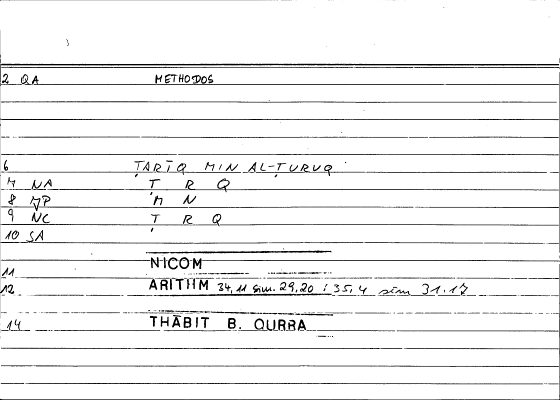 2 QA METHODOS
6 ṬARĪQ MIN AL-ṬURUQ
7 NA Ṭ R Q
8 MP M N
9 NC Ṭ R Q
10 SA
11 NICOM
12 ARITHM 34,11 sim. 29,20 ; 35,4 sim 31.17
14 THĀBIT B. QURRA